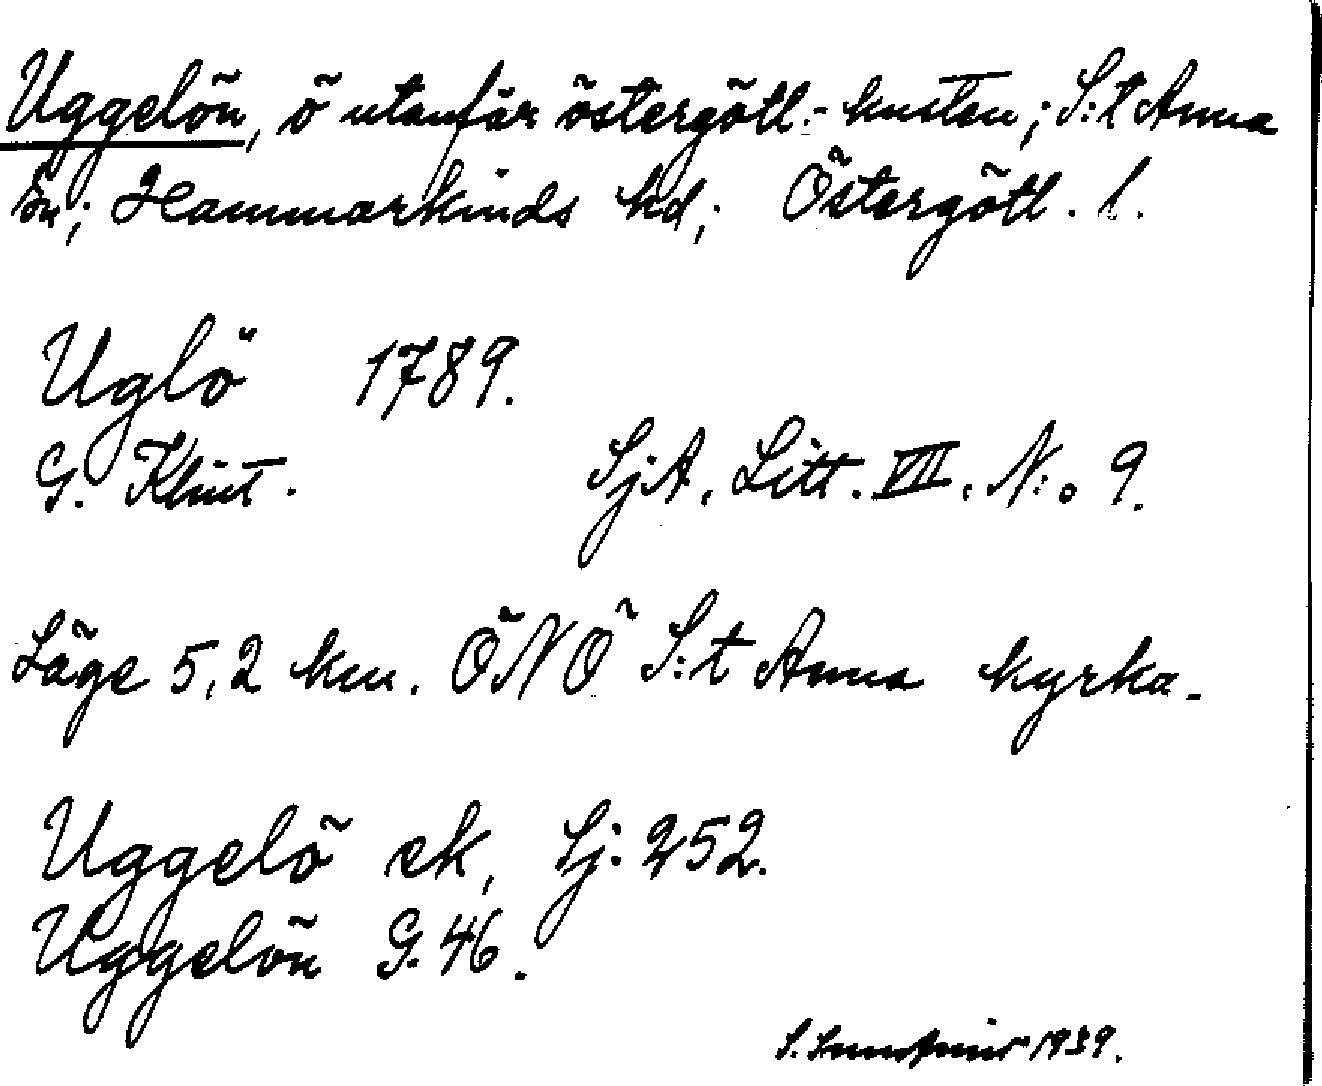 Uggelön, ö utanför östergötl.-kusten; S:t Anna
sn; Hammarkinds hd; Östergötl. l.
Uglö 1789.
G. Klint. SjA, Litt. VII, N:o 9.
Läge 5,2 km. ÖNÖ S:t Anna kyrka.
Uggelö ek, Sj: 252.
Uggelön G. 46.
S. 1939.